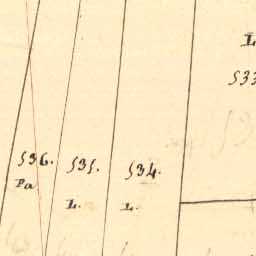 L
533
536.
Pa
535.
L.
534.
L.